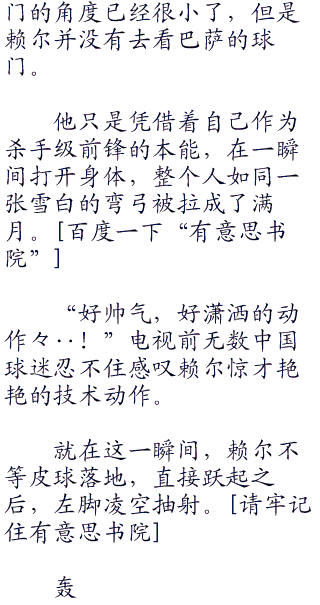 门的角度已经很小了，但是
赖尔并没有去看巴萨的球
门。
他只是凭借着自己作为
杀手级前锋的本能，在一瞬
间打开身体，整个人如同一
张雪白的弯弓被拉成了满
月。[百度一下“有意思书
院”]
“好帅气，好潇洒的动
作々··！”电视前无数中国
球迷忍不住感叹赖尔惊才艳
艳的技术动作。
就在这一瞬间，赖尔不
等皮球落地，直接跃起之
后，左脚凌空抽射。[请牢记
住有意思书院]
轰